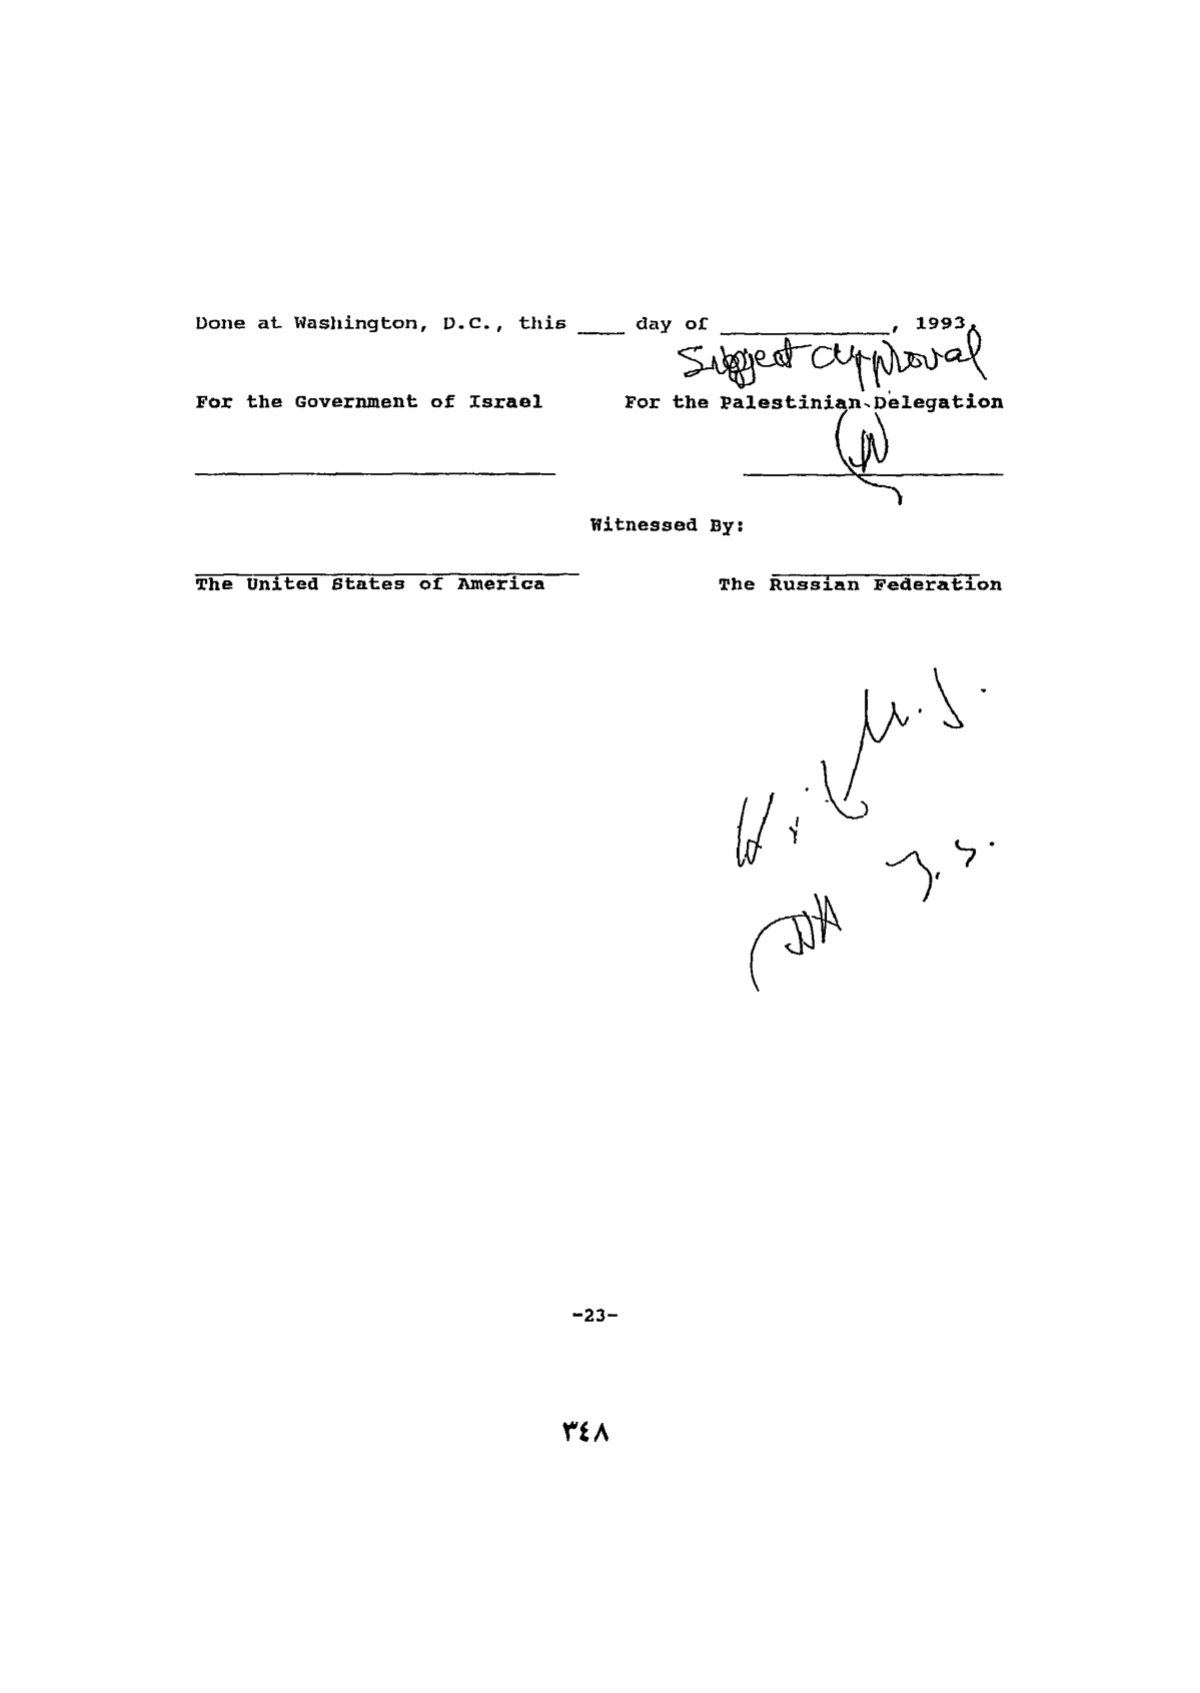 Done at Washington, D.C., this ____ day of ______________, 1993.
Suggest approval
For the Government of Israel For the Palestinian Delegation
Witnessed By:
The United States of America The Russian Federation
-23-
٣٤٨